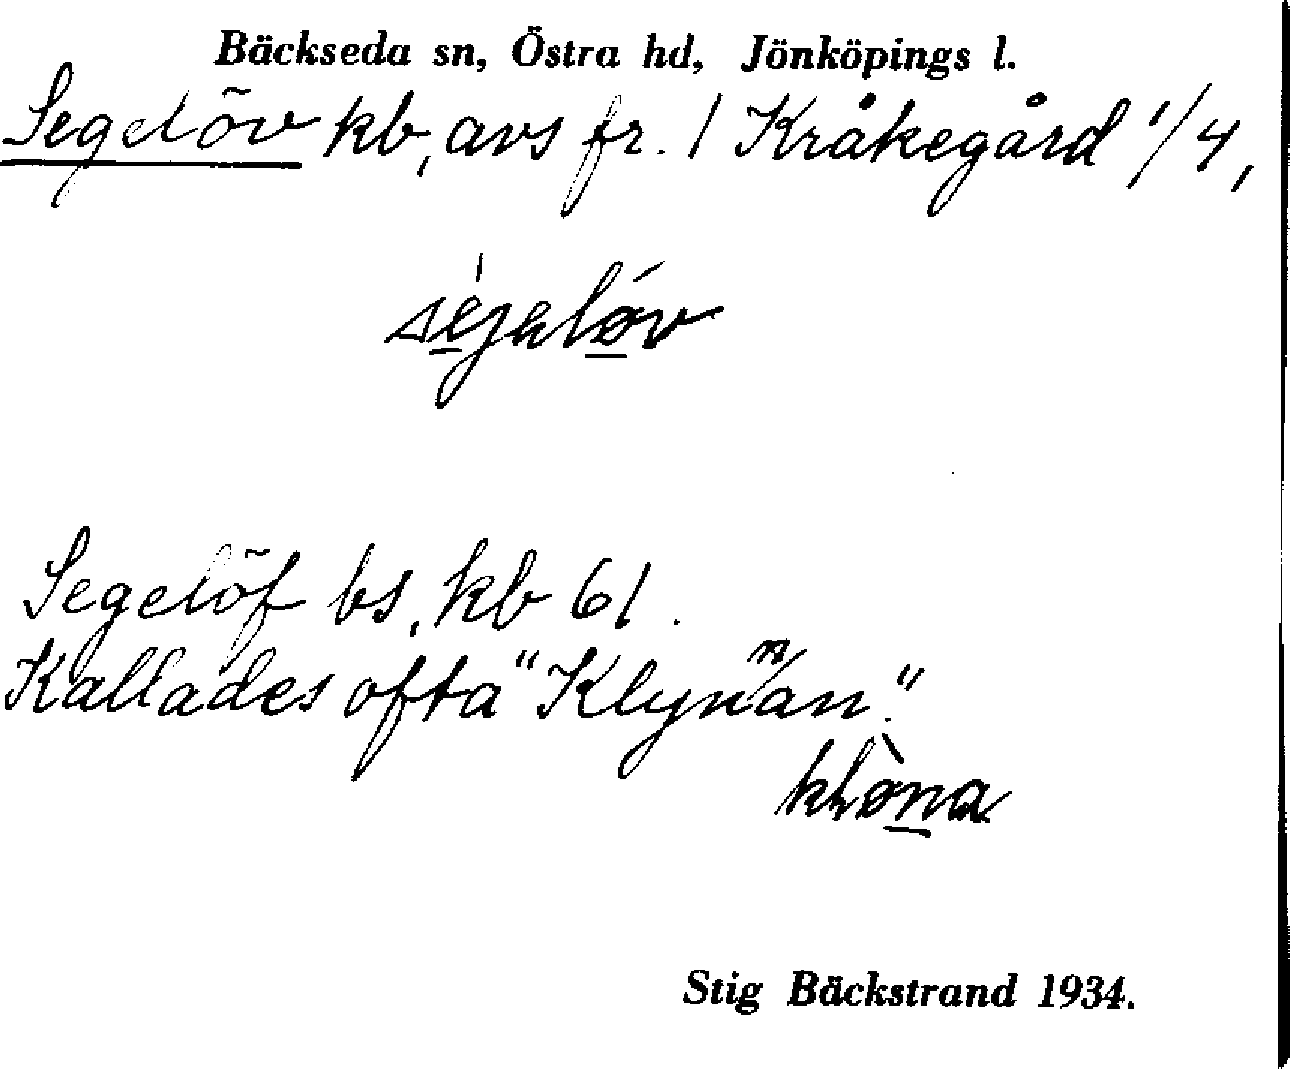 Bäckseda sn, Östra hd, Jönköpings l.
Segelöv kb, avs fr. 1 Kråkegård 1/4,
Segelöf bs, kb 61.
Kallades ofta "Klynnan."
Stig Bäckstrand 1934.